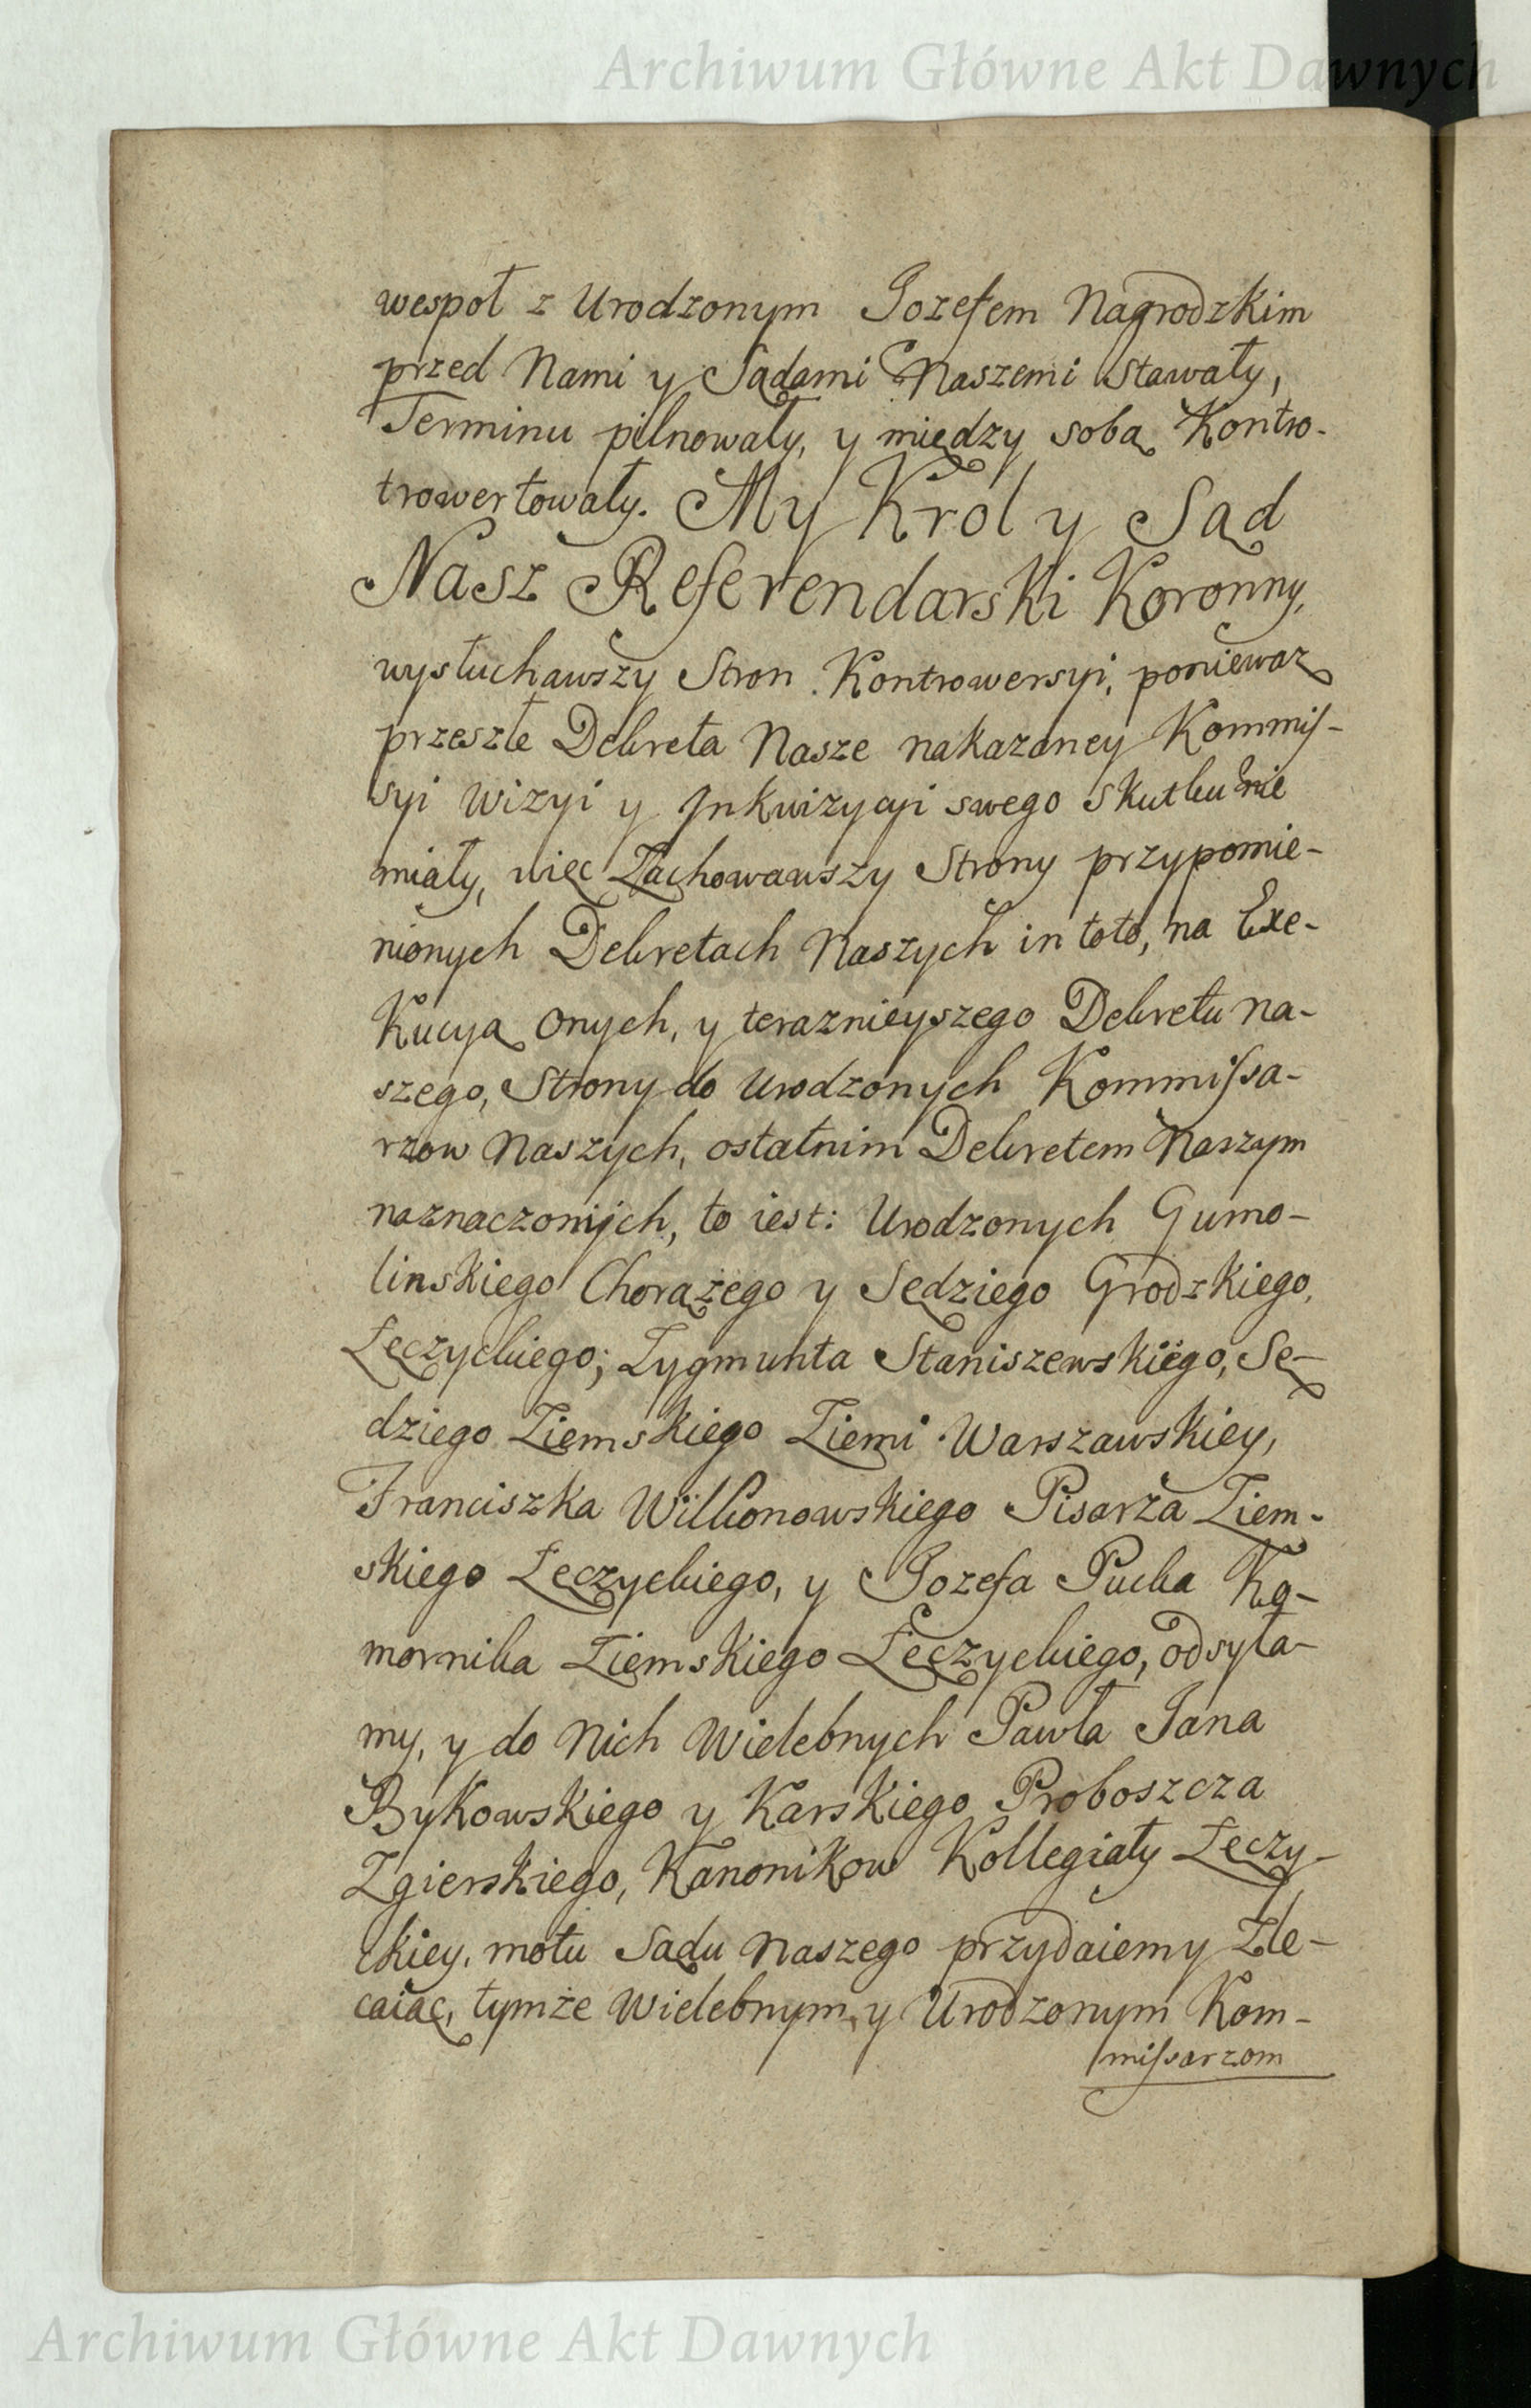 Archiwum Główne Akt Dawnych
wespoł z Urodzonym Jozefem Nagrodzkim
przed Nami y Sądami Naszemi stawały,
Terminu pilnowały, y między sobą Kontro-
trowertowały. My Krol y Sąd
Nasz Referendarski Koronny,
wysłuchawszy Stron Kontrowersyi, poniewaz
przeszłe Dekreta Nasze nakazaney Kommis-
syi Wizyi y Inkwizycyi swego skutku nie
miały, więc Zachowawszy Strony przypomie-
nionych Dekretach Naszych in toto, na Exe-
Kucyą onych, y teraznieyszego Dekretu na-
szego, Strony do Urodzonych Kommissa-
rzow Naszych, ostatnim Dekretem Naszym
naznaczonych, to iest: Urodzonych Gumo-
linskiego Chorążego y Sędziego Grodzkiego,
Łęczyckiego; Zygmunta Staniszewskiego, Sę-
dziego Ziemskiego Ziemi Warszawskiey,
Franciszka Wilkonowskiego Pisarza Ziem-
skiego Łęczyckiego, y Jozefa Pucka Ko-
mornika Ziemskiego Łęczyckiego, odsyła-
my, y do Nich Wielebnych Pawła Jana
Bykowskiego y Karskiego Proboszcza
Zgierskiego, Kanonikow Kollegiaty Łęczy-
ckiey, motu Sądu Naszego przydaiemy Zle-
caiąc, tymże Wielebnym y Urodzonym Kom-
missarzom
Archiwum Główne Akt Dawnych